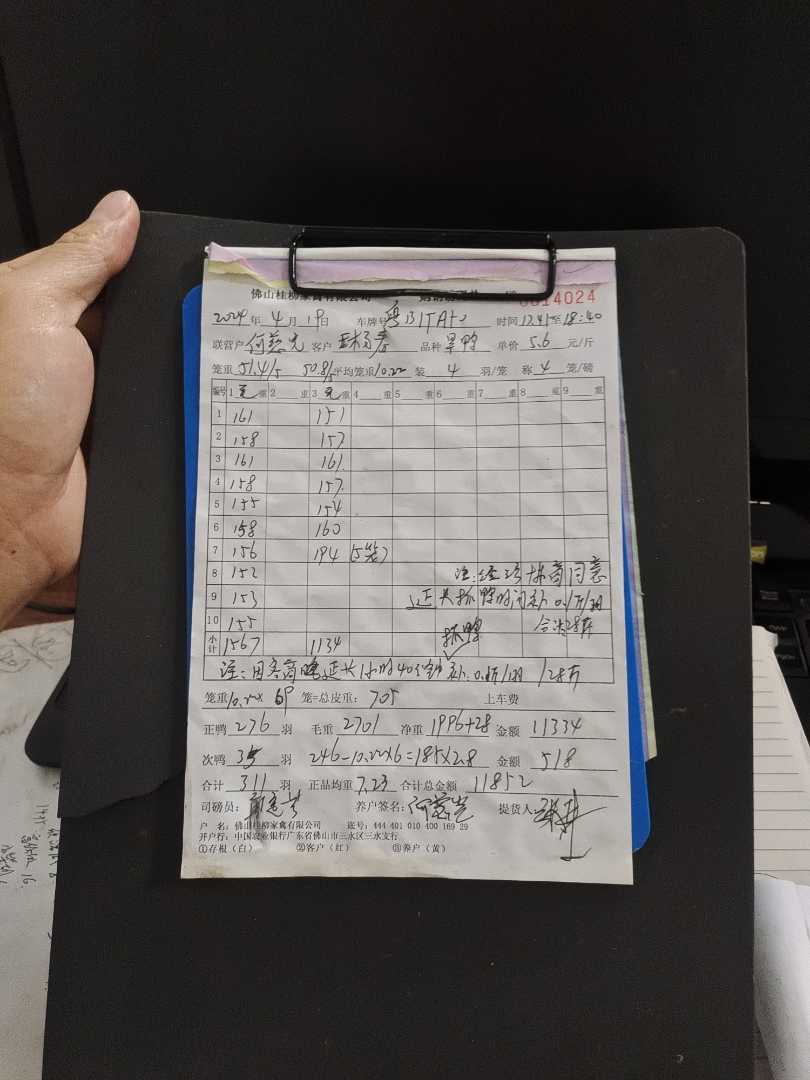 佛山桂柳家禽有限公司
0014024
2024年4月19日 车牌号 粤B 时间 17.41至18:40
联营户 何 客户 品种 旱鸭 单价 5.6 元/斤
笼重 51.4/5 50.8/5 平均笼重 10.22 装 4 羽/笼 称 4 笼/磅
编号 1 毛 重 2 重 3 毛 重 4 重 5 重 6 重 7 重 8 重 9 重
1 161 151
2 158 157
3 161 161
4 158 157
5 155 154
6 158 160
7 156 194 (5笼)
8 152 注:经 同意
9 153 延长抓鸭时间补0.1斤/羽
10 155 合计28斤
小计 1567 1134 抓鸭
注: 延长1小时40分钟补0.1斤/羽 128斤
笼重 10.22× 69 笼=总皮重: 705 上车费
正鸭 276 羽 毛重 2701 净重 1996+28 金额 11334
次鸭 35 羽 246-10.22×6=185×2.8 金额 518
合计 311 羽 正品均重 7.23 合计总金额 11852
司磅员: 养户签名: 何 提货人:
户 名: 佛山桂柳家禽有限公司 账号: 444 401 010 400 169 29
开户行: 中国农业银行广东省佛山市三水区三水支行
①存根(白) ②客户(红) ③养户(黄)